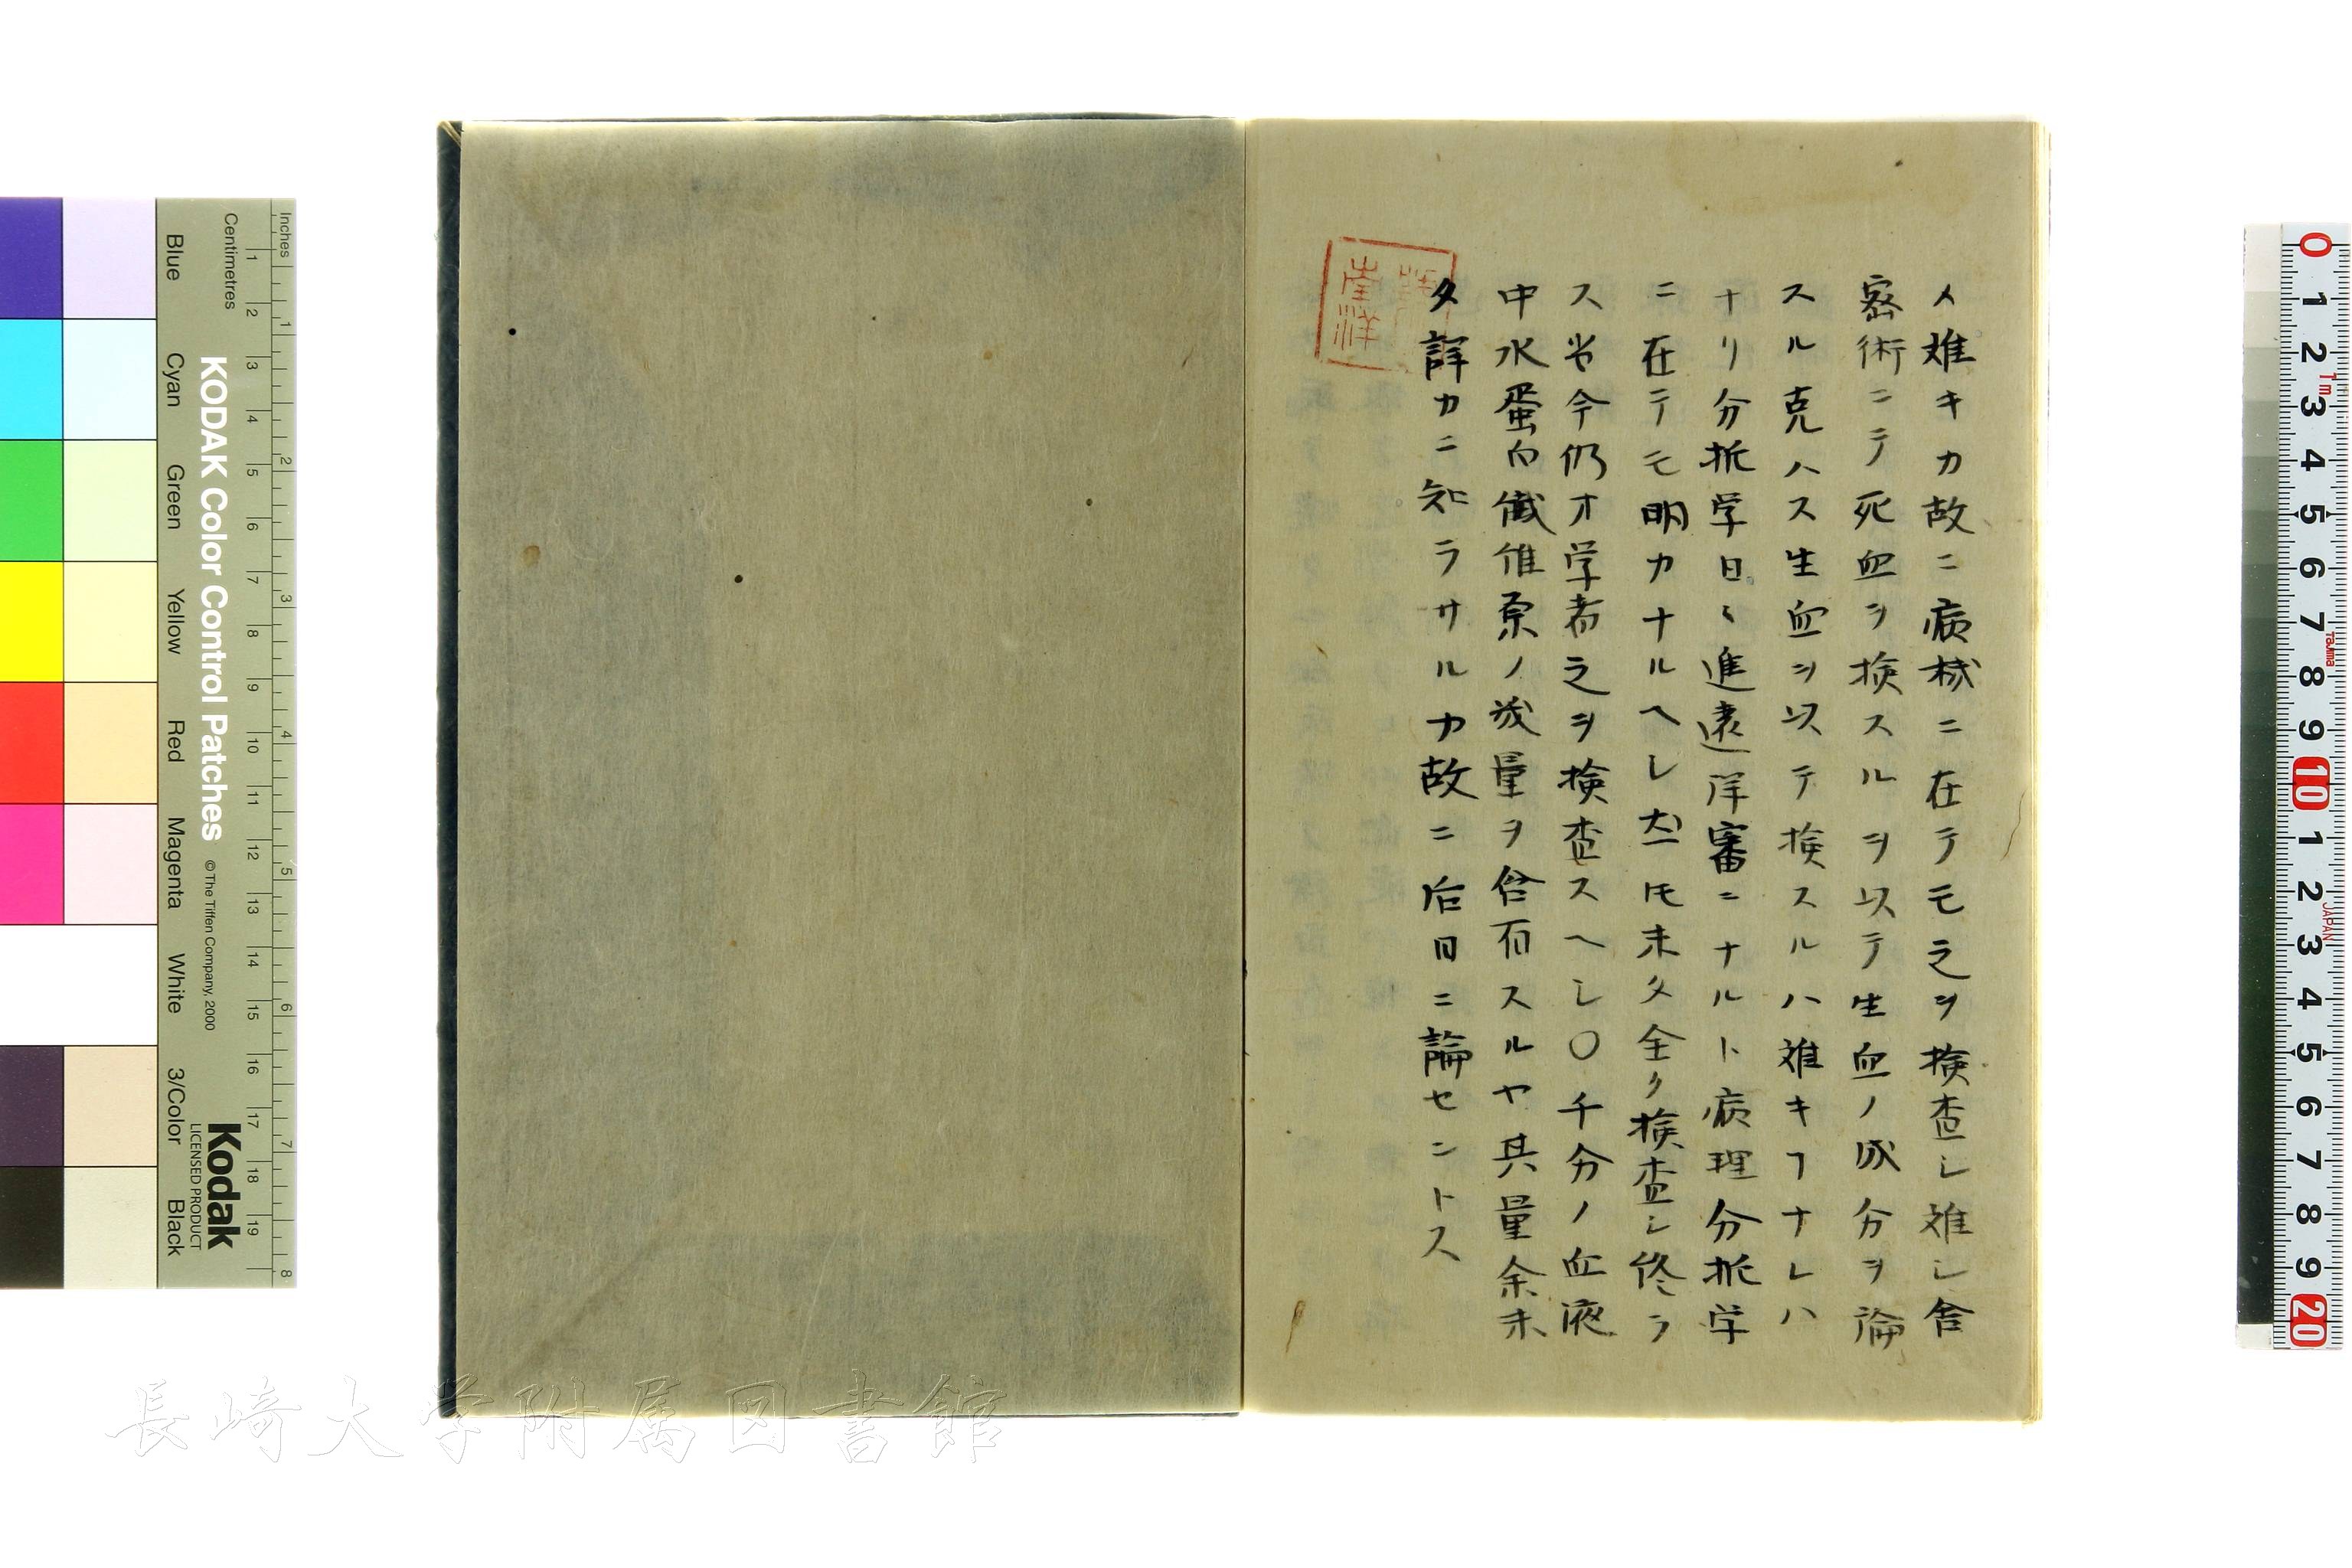 メ難キカ故ニ病械ニ在テモ之ヲ検査シ難シ舎
密術ニテ死血ヲ検スルヲ以テ生血ノ成分ヲ論
スル克ハス生血ヲ以テ検スルハ難キヿナレハ
ナリ分拆学日〻進遠洋審ニナルト病理分拆学
ニ在テモ明カナルヘシ𪜈未タ全ク検査シ終ラ
ス当今仍才学者之ヲ検査スヘシ〇千分ノ血液
中水蛋白繊維原ノ成量ヲ含有スルヤ其量余未
タ詳カニ知ラサルカ故ニ后日ニ論セントス
長崎大学附属図書館
KODAK Color Control Patches
© The Tiffen Company, 2000
Kodak
LICENSED PRODUCT
Inches 1 2 3 4 5 6 7 8
Centimetres 1 2 3 4 5 6 7 8 9 10 11 12 13 14 15 16 17 18 19
Blue Cyan Green Yellow Red Magenta White 3/Color Black
0 1 2 3 4 5 6 7 8 9 10 1 2 3 4 5 6 7 8 9 20
1m Tajima JAPAN